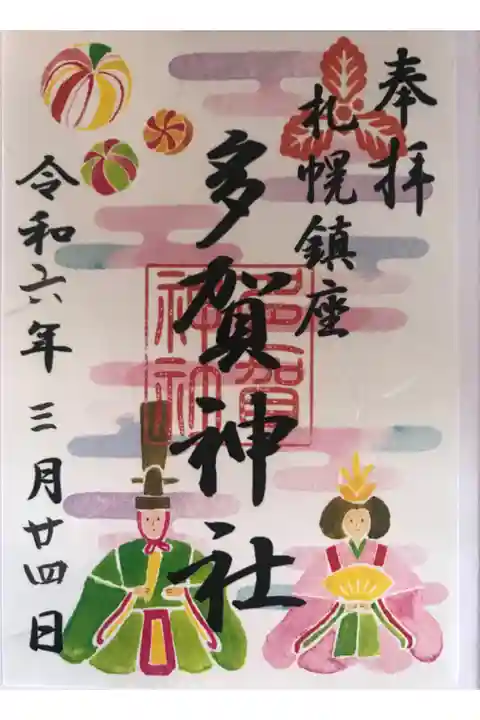 奉拝
札幌鎮座
多賀神社
多賀
神社
令和六年三月廿四日